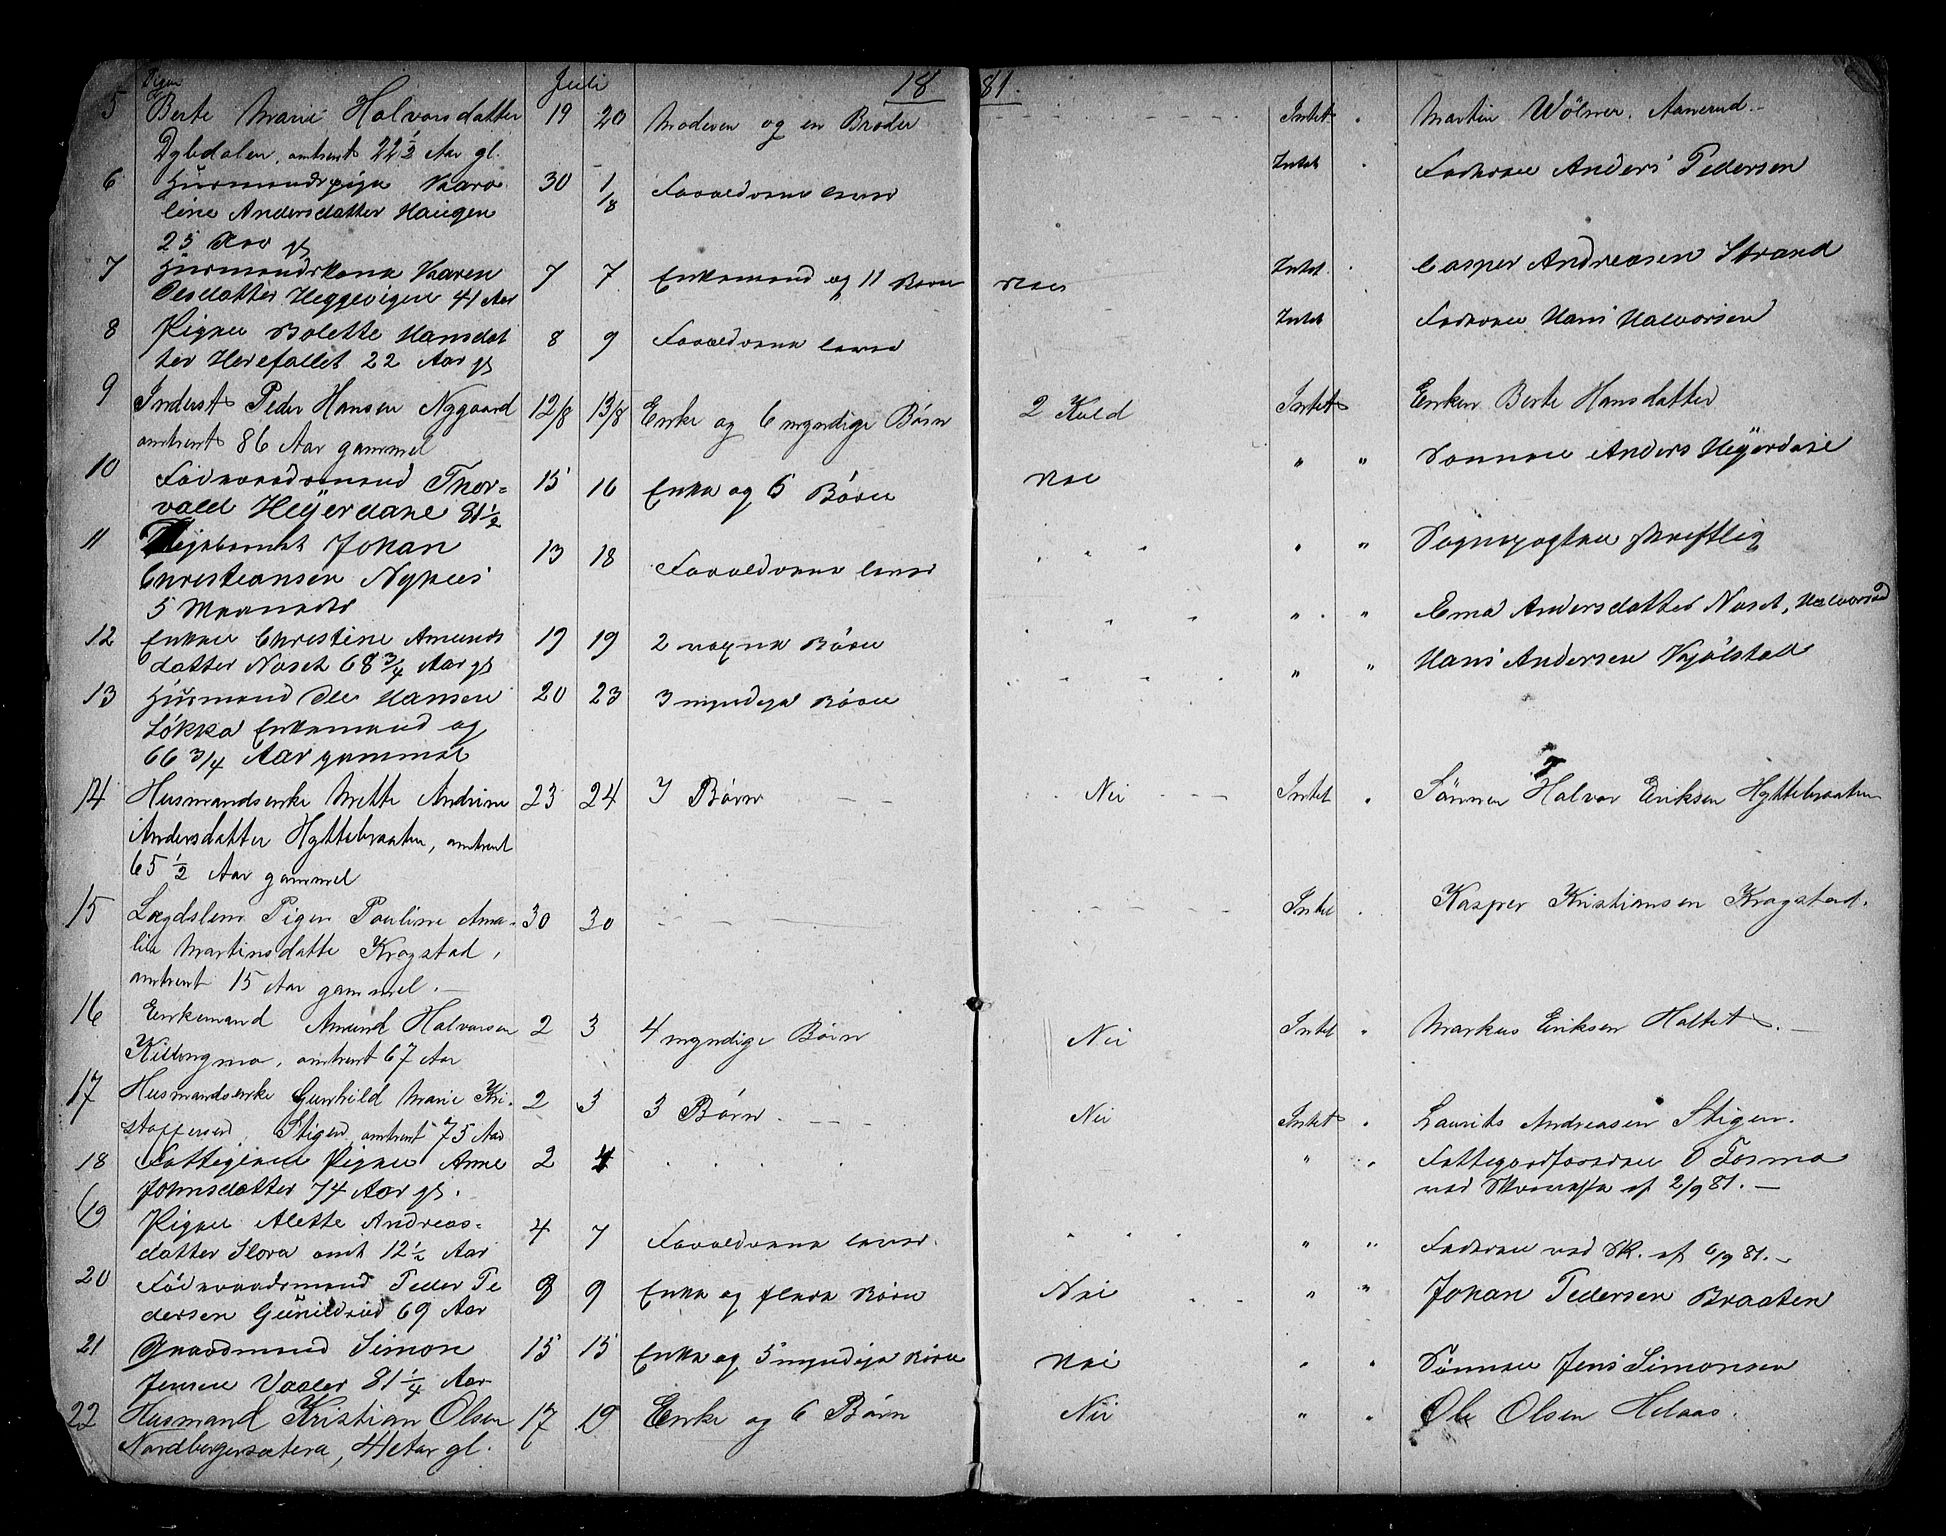 Juli 1881.
5 Pigen Berte Marie Halvorsdatter 19 20 Moderen og en Broder Intet " Martin Wölner, Aanerud.
Dybdalen, omtrent 22 1/2 Aar gl.
6 Husmandspige Karo 30 1/8 Forældrene lever Intet " Faderen Anders Pedersen
line Andersdatter Haugen
25 Aar gl
7 Husmandskone Karen 7 7 Enkemand og 11 Børn Nei Intet " Casper Andreasen Strand
Olsdatter Heggevigen 41 Aar
8 Pigen Bolette Hansdat 8 9 Forældrene lever Intet Faderen Hans Halvorsen
ter Herefallet 22 Aar gl
9 Inderst Peder Hansen Nygaard 12/8 13/8 Enke og 6 myndige Børn 2 Kuld Intet Enken Berte Hansdatter
omtrent 86 Aar gammel
10 Föderaadsmand Thor= 15 16 Enke og 6 Børn Nei " " Sønnen Anders Heyerdal
vald Heyerdahl 81 1/2
11 Pigebarnet Johan 13 18 Forældrene lever " " " " " Sognepresten skriftlig
Christiansen Nyhus
5 Maaneder
12 Enken Christine Amunds 19 19 2 voxne Børn " " " " Ema Andersdatter Noset, Halvorsrud
datter Noset 68 3/4 Aar gl
13 Husmand Ole Hansen 20 23 3 myndige Børn " " Hans Andersen Kjölstad
Løkka Enkemand og
66 3/4 Aar gammel
14 Husmandsenke Mette Andrine 23 24 3 Børn Nei Intet " Sønnen Halvor Eriksen Hyttebraaten
Andersdatter Hyttebraaten, omtrent
65 1/2 Aar gammel
15 Lægdslem Pigen Pauline Ama- 30 30 Intet " Kasper Kristiansen Krogstad.
lia Martinsdatte Krogstad,
omtrent 15 Aar gammel.
16 Enkemand Amund Halvorsen 2 3 4 myndige Børn Nei Intet " Markus Eriksen Holtet.
Killingmo, omtrent 67 Aar
17 Husmandsenke Gunhild Marie Kri- 2 3 3 Børn Nei Intet " Laurits Andreasen Stigen.
stoffersen, Stigen, omtrent 75 Aar
18 Fattiglem Pigen Anne 2 4 " " Fattegaardforstander O Formo
Johnsdatter 74 Aar gl. ved Skrivelse af 2/9 81.
19 Pigen Alette Andreas= 4 7 Forældrene lever. " " " " " Faderen ved Sk. af 6/9 81.
datter Flora omt 12 1/2 Aar
20 Föderaadsmand Peder Pe 8 9 Enke og flere Børn Nei " " Johan Pedersen Braaten
dersen Gunildrud 69 Aar
21 Gaardmand Simon 15 15 Enke og 5 myndige Børn Nei " " Sønnen Jens Simonsen
Jensen Vaaler 81 1/4 Aar
22 Husmand Kristian Olsen 17 19 Enke og 6 Børn Nei " " Ole Olsen Helaas.
Nordbergersætera, 41 Aar gl.